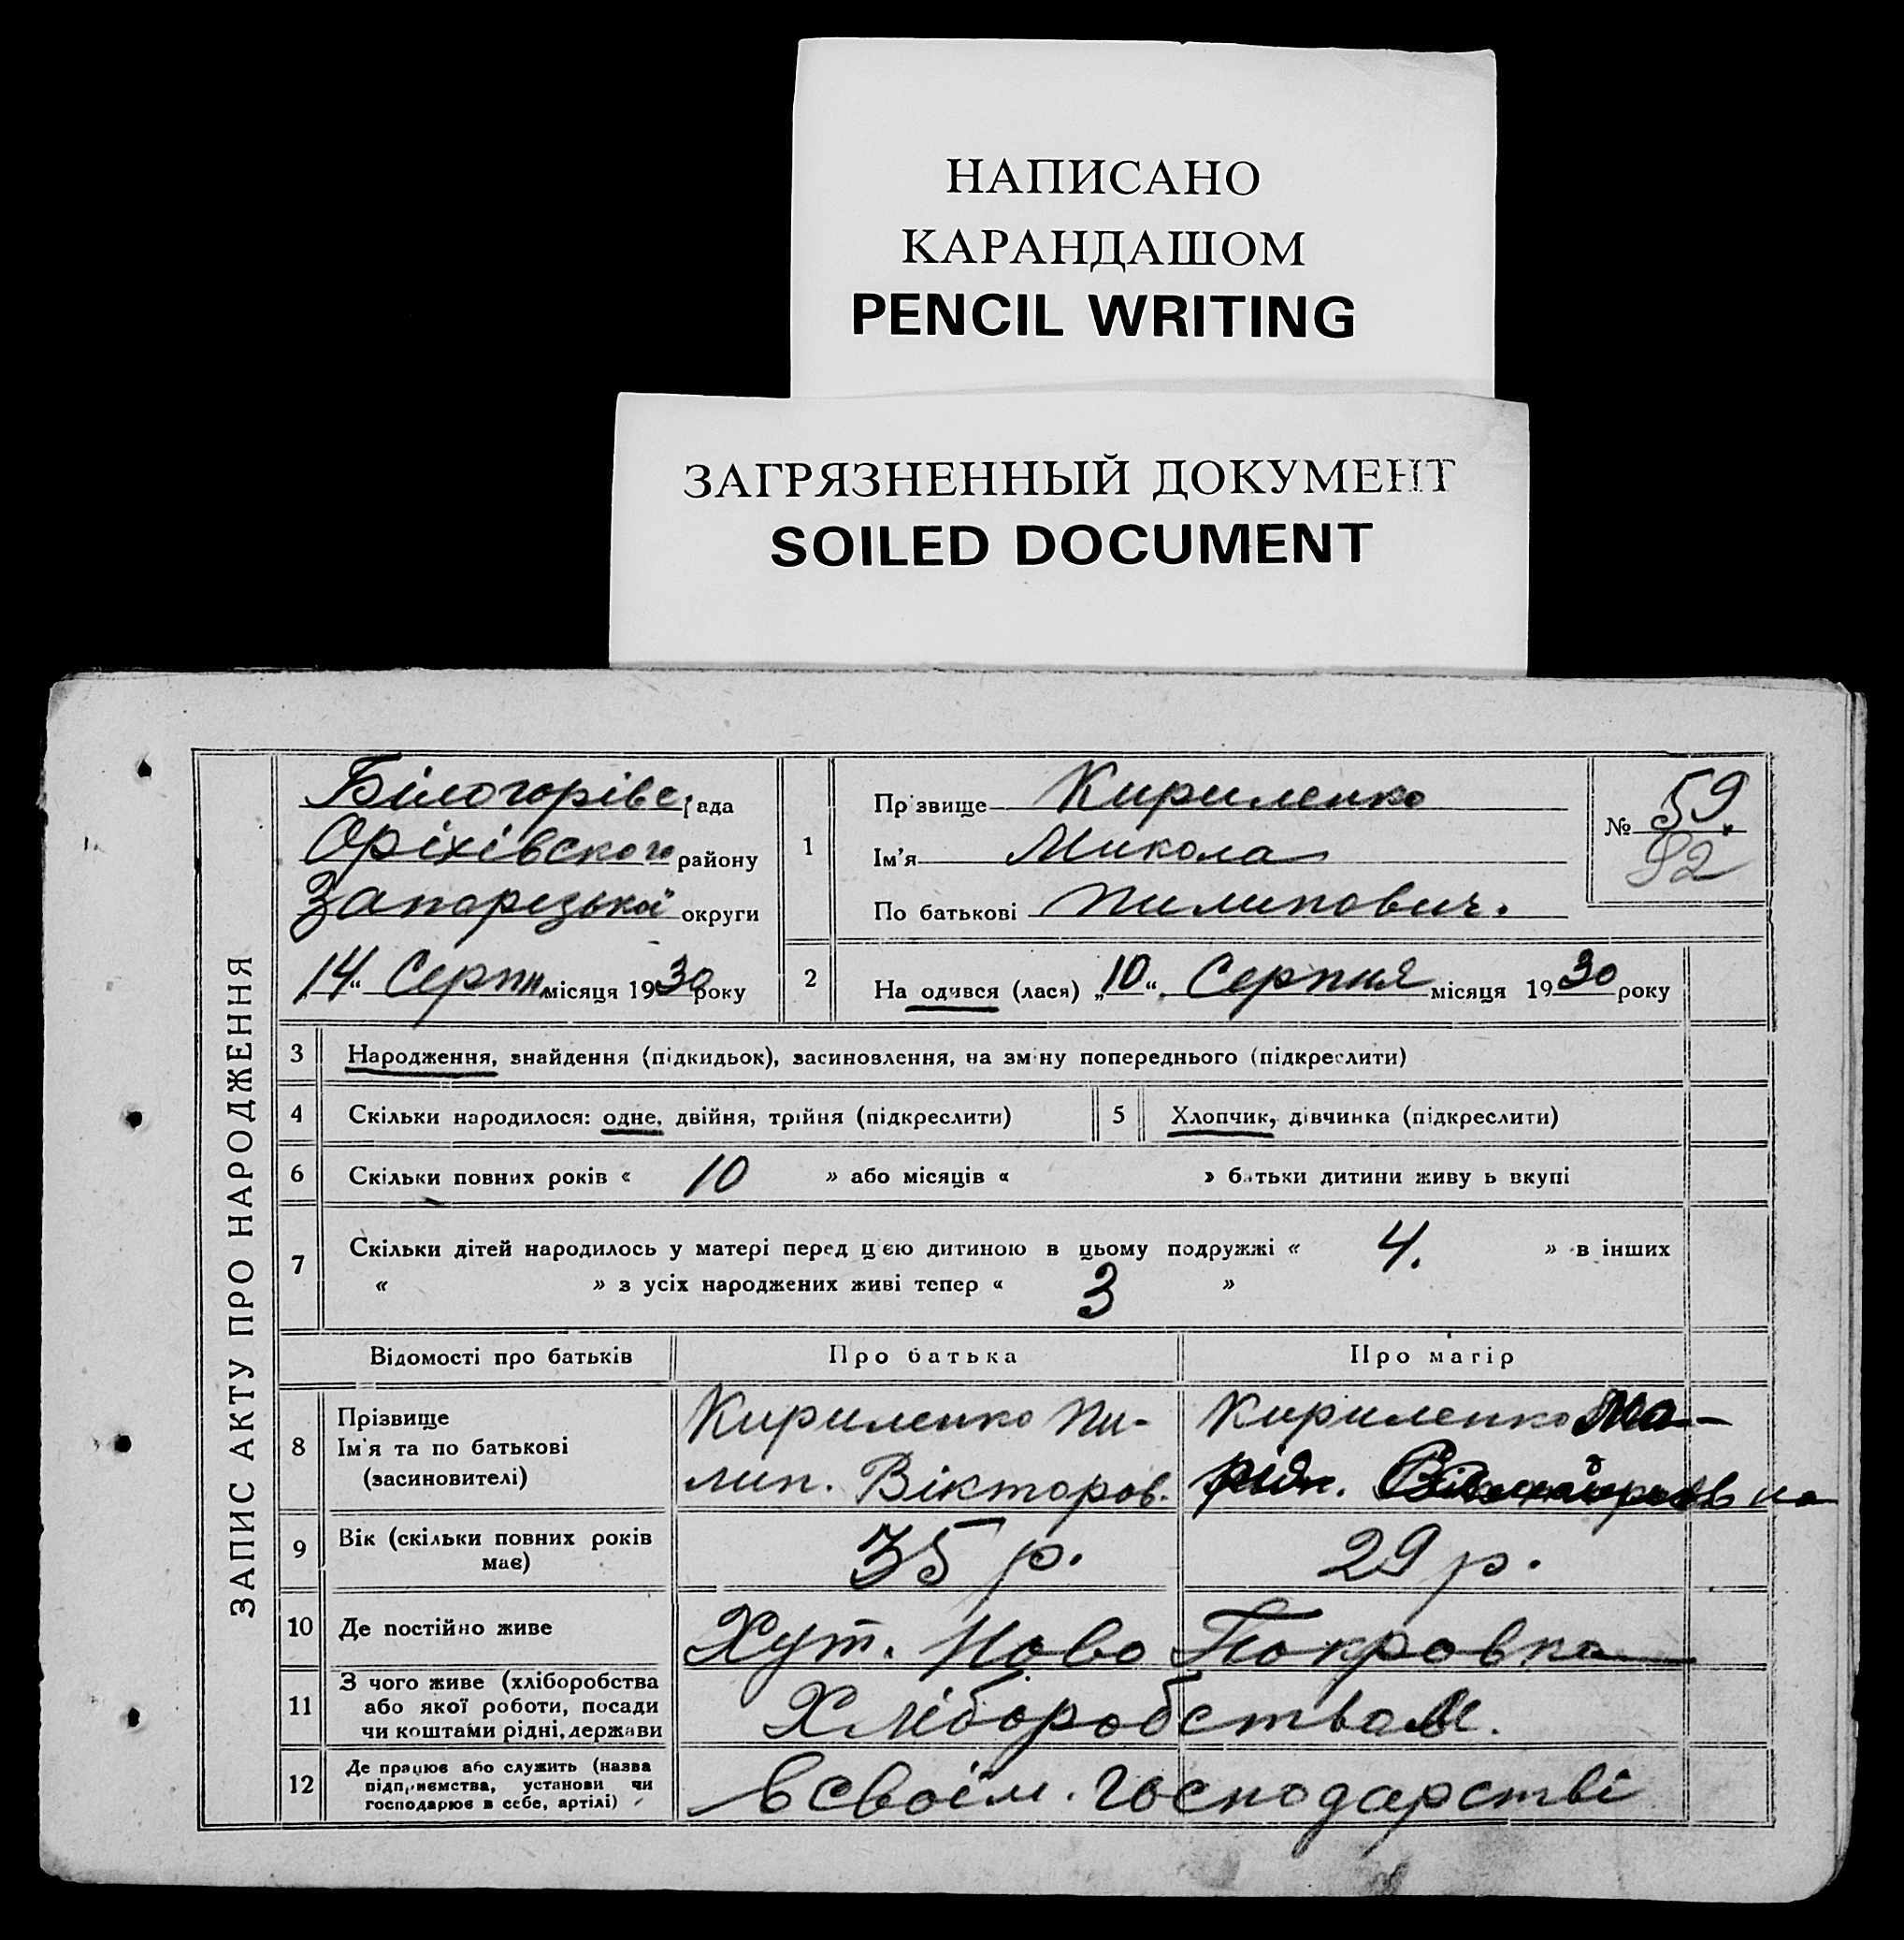 НАПИСАНО
КАРАНДАШОМ
PENCIL WRITING
ЗАГРЯЗНЕННЫЙ ДОКУМЕНТ
SOILED DOCUMENT
ЗАПИС АКТУ ПРО НАРОДЖЕННЯ
Білогорівс рада
Оріхівского району
Запорізької округи
„14“ Серпн місяця 1930 року
1
Прізвище Кириленко
Ім'я Микола
По батькові Пилипович.
№ 59
92
2
На одився (лася) „10“ Серпня місяця 1930 року
3 Народження, знайдення (підкидьок), засиновлення, на зміну попереднього (підкреслити)
4 Скільки народилося: одне, двійня, трійня (підкреслити) 5 Хлопчик, дівчинка (підкреслити)
6 Скільки повних років « 10 » або місяців « » батьки дитини живу ь вкупі
7 Скільки дітей народилось у матері перед цією дитиною в цьому подружжі « 4. » в інших
« » з усіх народжених живі тепер « 3 »
Відомості про батьків Про батька Про матір
8 Прізвище
Ім'я та по батькові
(засиновителі)
Кириленко Пи-
лип. Вікторов.
Кириленко Ма-
9 Вік (скільки повних років
має)
35 р. 29 р.
10 Де постійно живе Хут. Ново Покровка
11 З чого живе (хліборобства
або якої роботи, посади
чи коштами рідні, держави
Хліборобством.
12 Де працює або служить (назва
підприємства, установи чи
господарює в себе, артілі)
в своїм. господарстві